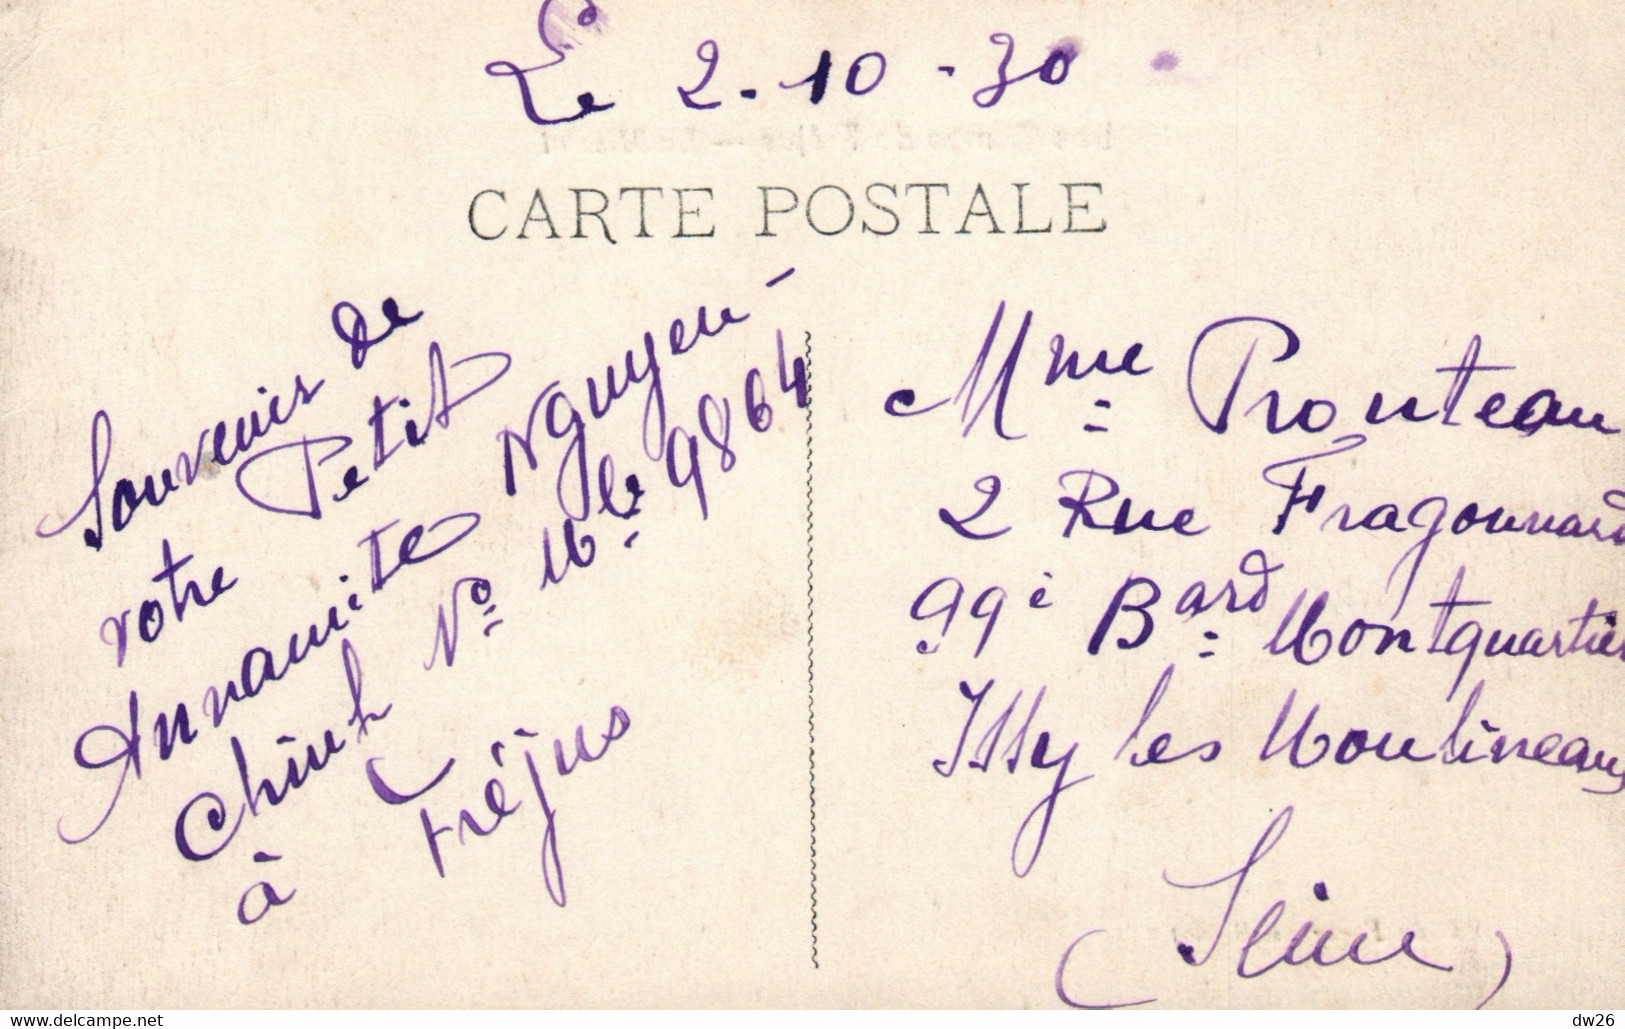 Le 2-10-30
CARTE POSTALE
Souvenir de
votre Petit
Annamite Nguyen-
Chinh No Mle 9864
à Fréjus
Mme Pronteau
2 Rue Fragonnard
99è Bard Montquartier
Issy les Moulineaux
(Seine)
delcampe.net
dw26